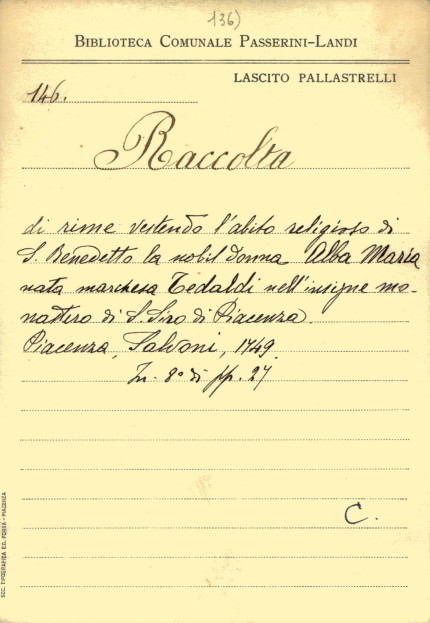 136)
BIBLIOTECA COMUNALE PASSERINI-LANDI
LASCITO PALLASTRELLI
146.
Raccolta
di rime vestendo l'abito religioso di
S. Benedetto la nobil donna Alba Maria
nata marchesa Tedaldi nell'insigne mo-
nastero di S. Siro di Piacenza.
Piacenza, Salvoni, 1749.
In-8° di pp. 27
C.
SOC. TIPOGRAFIA ED. PORTA - PIACENZA